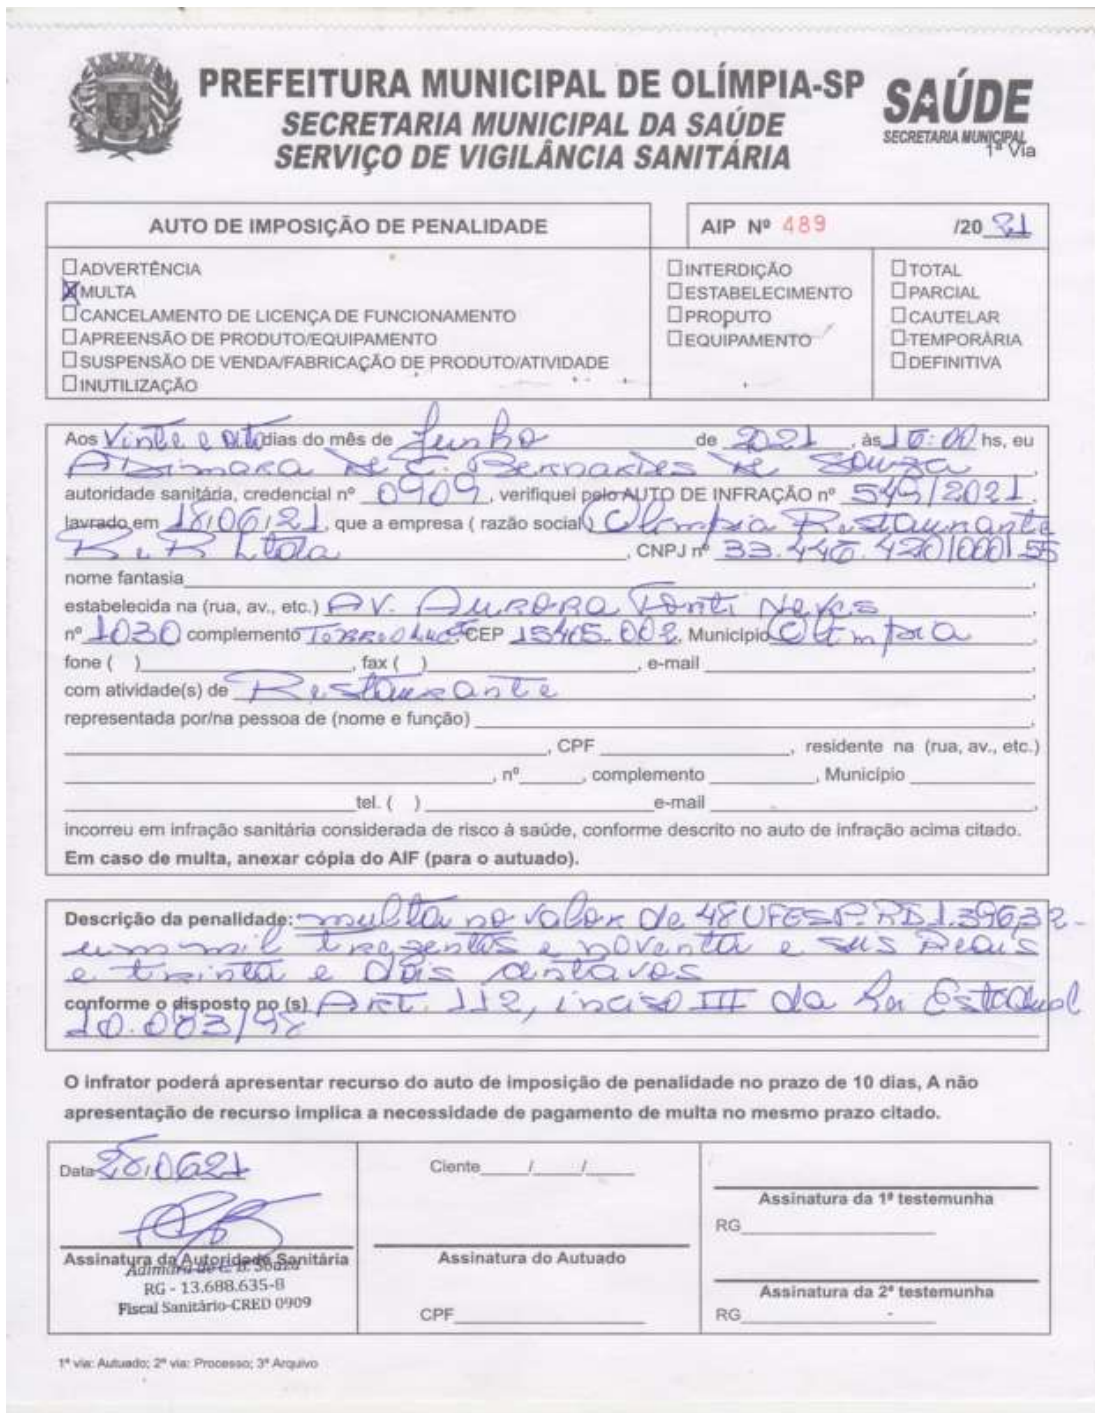 PREFEITURA MUNICIPAL DE OLÍMPIA-SP
SECRETARIA MUNICIPAL DA SAÚDE
SERVIÇO DE VIGILÂNCIA SANITÁRIA
SAÚDE
SECRETARIA MUNICIPAL
1ª Via
AUTO DE IMPOSIÇÃO DE PENALIDADE
AIP Nº 489 /20 21
ADVERTÊNCIA
MULTA
CANCELAMENTO DE LICENÇA DE FUNCIONAMENTO
APREENSÃO DE PRODUTO/EQUIPAMENTO
SUSPENSÃO DE VENDA/FABRICAÇÃO DE PRODUTO/ATIVIDADE
INUTILIZAÇÃO
INTERDIÇÃO
ESTABELECIMENTO
PRODUTO
EQUIPAMENTO
TOTAL
PARCIAL
CAUTELAR
TEMPORÁRIA
DEFINITIVA
Aos Vinte e oito dias do mês de Junho de 2021, às 16:00 hs, eu
Adimara de C. Bernardes de Souza,
autoridade sanitária, credencial nº 0909, verifiquei pelo AUTO DE INFRAÇÃO nº 549/2021,
lavrado em 18/06/21, que a empresa ( razão social ) Olimpia Restaurante
R e R Ltda, CNPJ nº 33.446.420/0001 55
nome fantasia
estabelecida na (rua, av., etc.) AV. Aurora Forti Neves
nº 1030 complemento CEP 15405.002, Município Olimpia
fone ( ) , fax ( ) , e-mail ,
com atividade(s) de Restaurante,
representada por/na pessoa de (nome e função) ,
, CPF , residente na (rua, av., etc.)
, nº , complemento , Município
tel. ( ) e-mail ,
incorreu em infração sanitária considerada de risco à saúde, conforme descrito no auto de infração acima citado.
Em caso de multa, anexar cópia do AIF (para o autuado).
Descrição da penalidade: multa no valor de 48 UFESP. 1.396,32-
um mil trezentos e noventa e seis Reais
e trinta e dois centavos
conforme o disposto no (s) Art. 112, inciso III da Lei Estadual
10.083/98
O infrator poderá apresentar recurso do auto de imposição de penalidade no prazo de 10 dias, A não
apresentação de recurso implica a necessidade de pagamento de multa no mesmo prazo citado.
Data 28/06 21
Assinatura da Autoridade Sanitária
Adimara de C. B. Souza
RG - 13.688.635-8
Fiscal Sanitário-CRED 0909
Ciente / /
Assinatura do Autuado
CPF
Assinatura da 1ª testemunha
RG
Assinatura da 2ª testemunha
RG
1ª via: Autuado; 2ª via: Processo; 3ª Arquivo